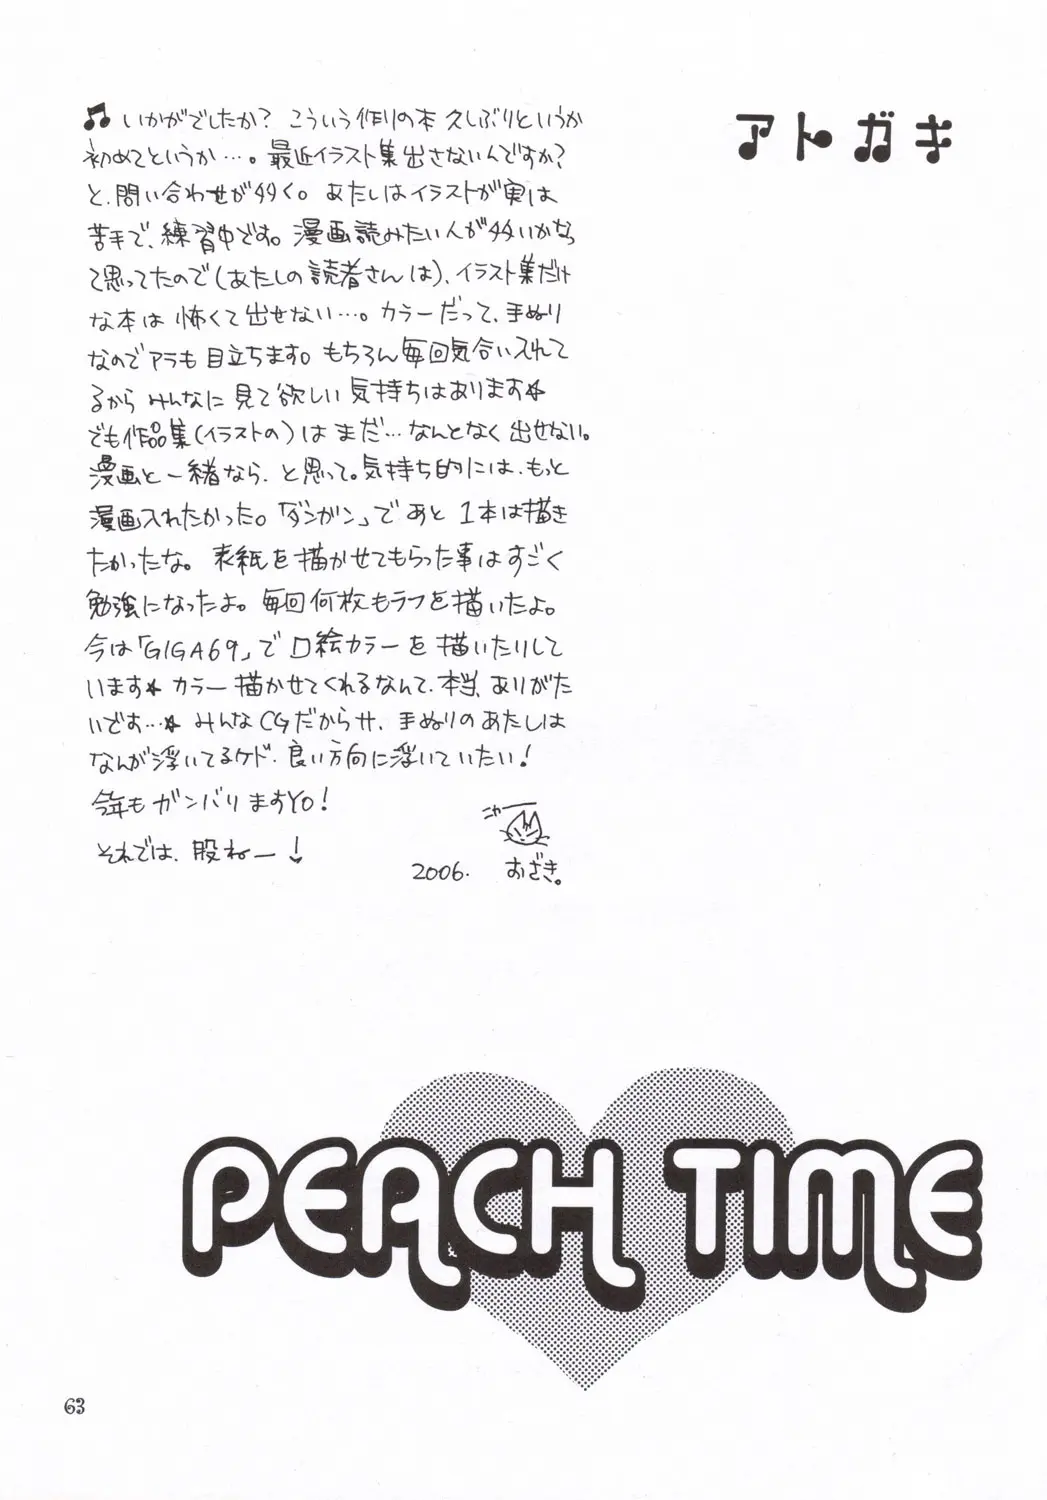 アトガキ
♫ いかがでしたか? こういう作りの本 久しぶりというか
初めてというか…。最近イラスト集出さないんですか?
と、問い合わせが多く。あたしはイラストが実は
苦手で、練習中です。漫画読みたい人が多いかな
て思ってたので(あたしの読者さんは)、イラスト集だけ
な本は 怖くて出せない…。カラーだって、手ぬり
なのでアラも目立ちます。もちろん毎回気合い入れて
るから みんなに見て欲しい気持ちはあります★
でも作品集(イラストの)は まだ…なんとなく出せない。
漫画と一緒なら、と思って。気持ち的には、もっと
漫画入れたかった。「ダンガン」で あと 1本は描き
たかったな。 表紙を描かせてもらった事は すごく
勉強になったよ。毎回何枚もラフを描いたよ。
今は「GIGA69」で 口絵カラーを描いたりして
います★ カラー描かせてくれるなんて、本当、ありがた
いです…★ みんなCGだからサ、手ぬりのあたしは
なんか浮いてるケド、良い方向に浮いていたい!
今年も ガンバリますYO!
それでは、股ねー!
ニャー
2006. おざき。
PEACH TIME
63